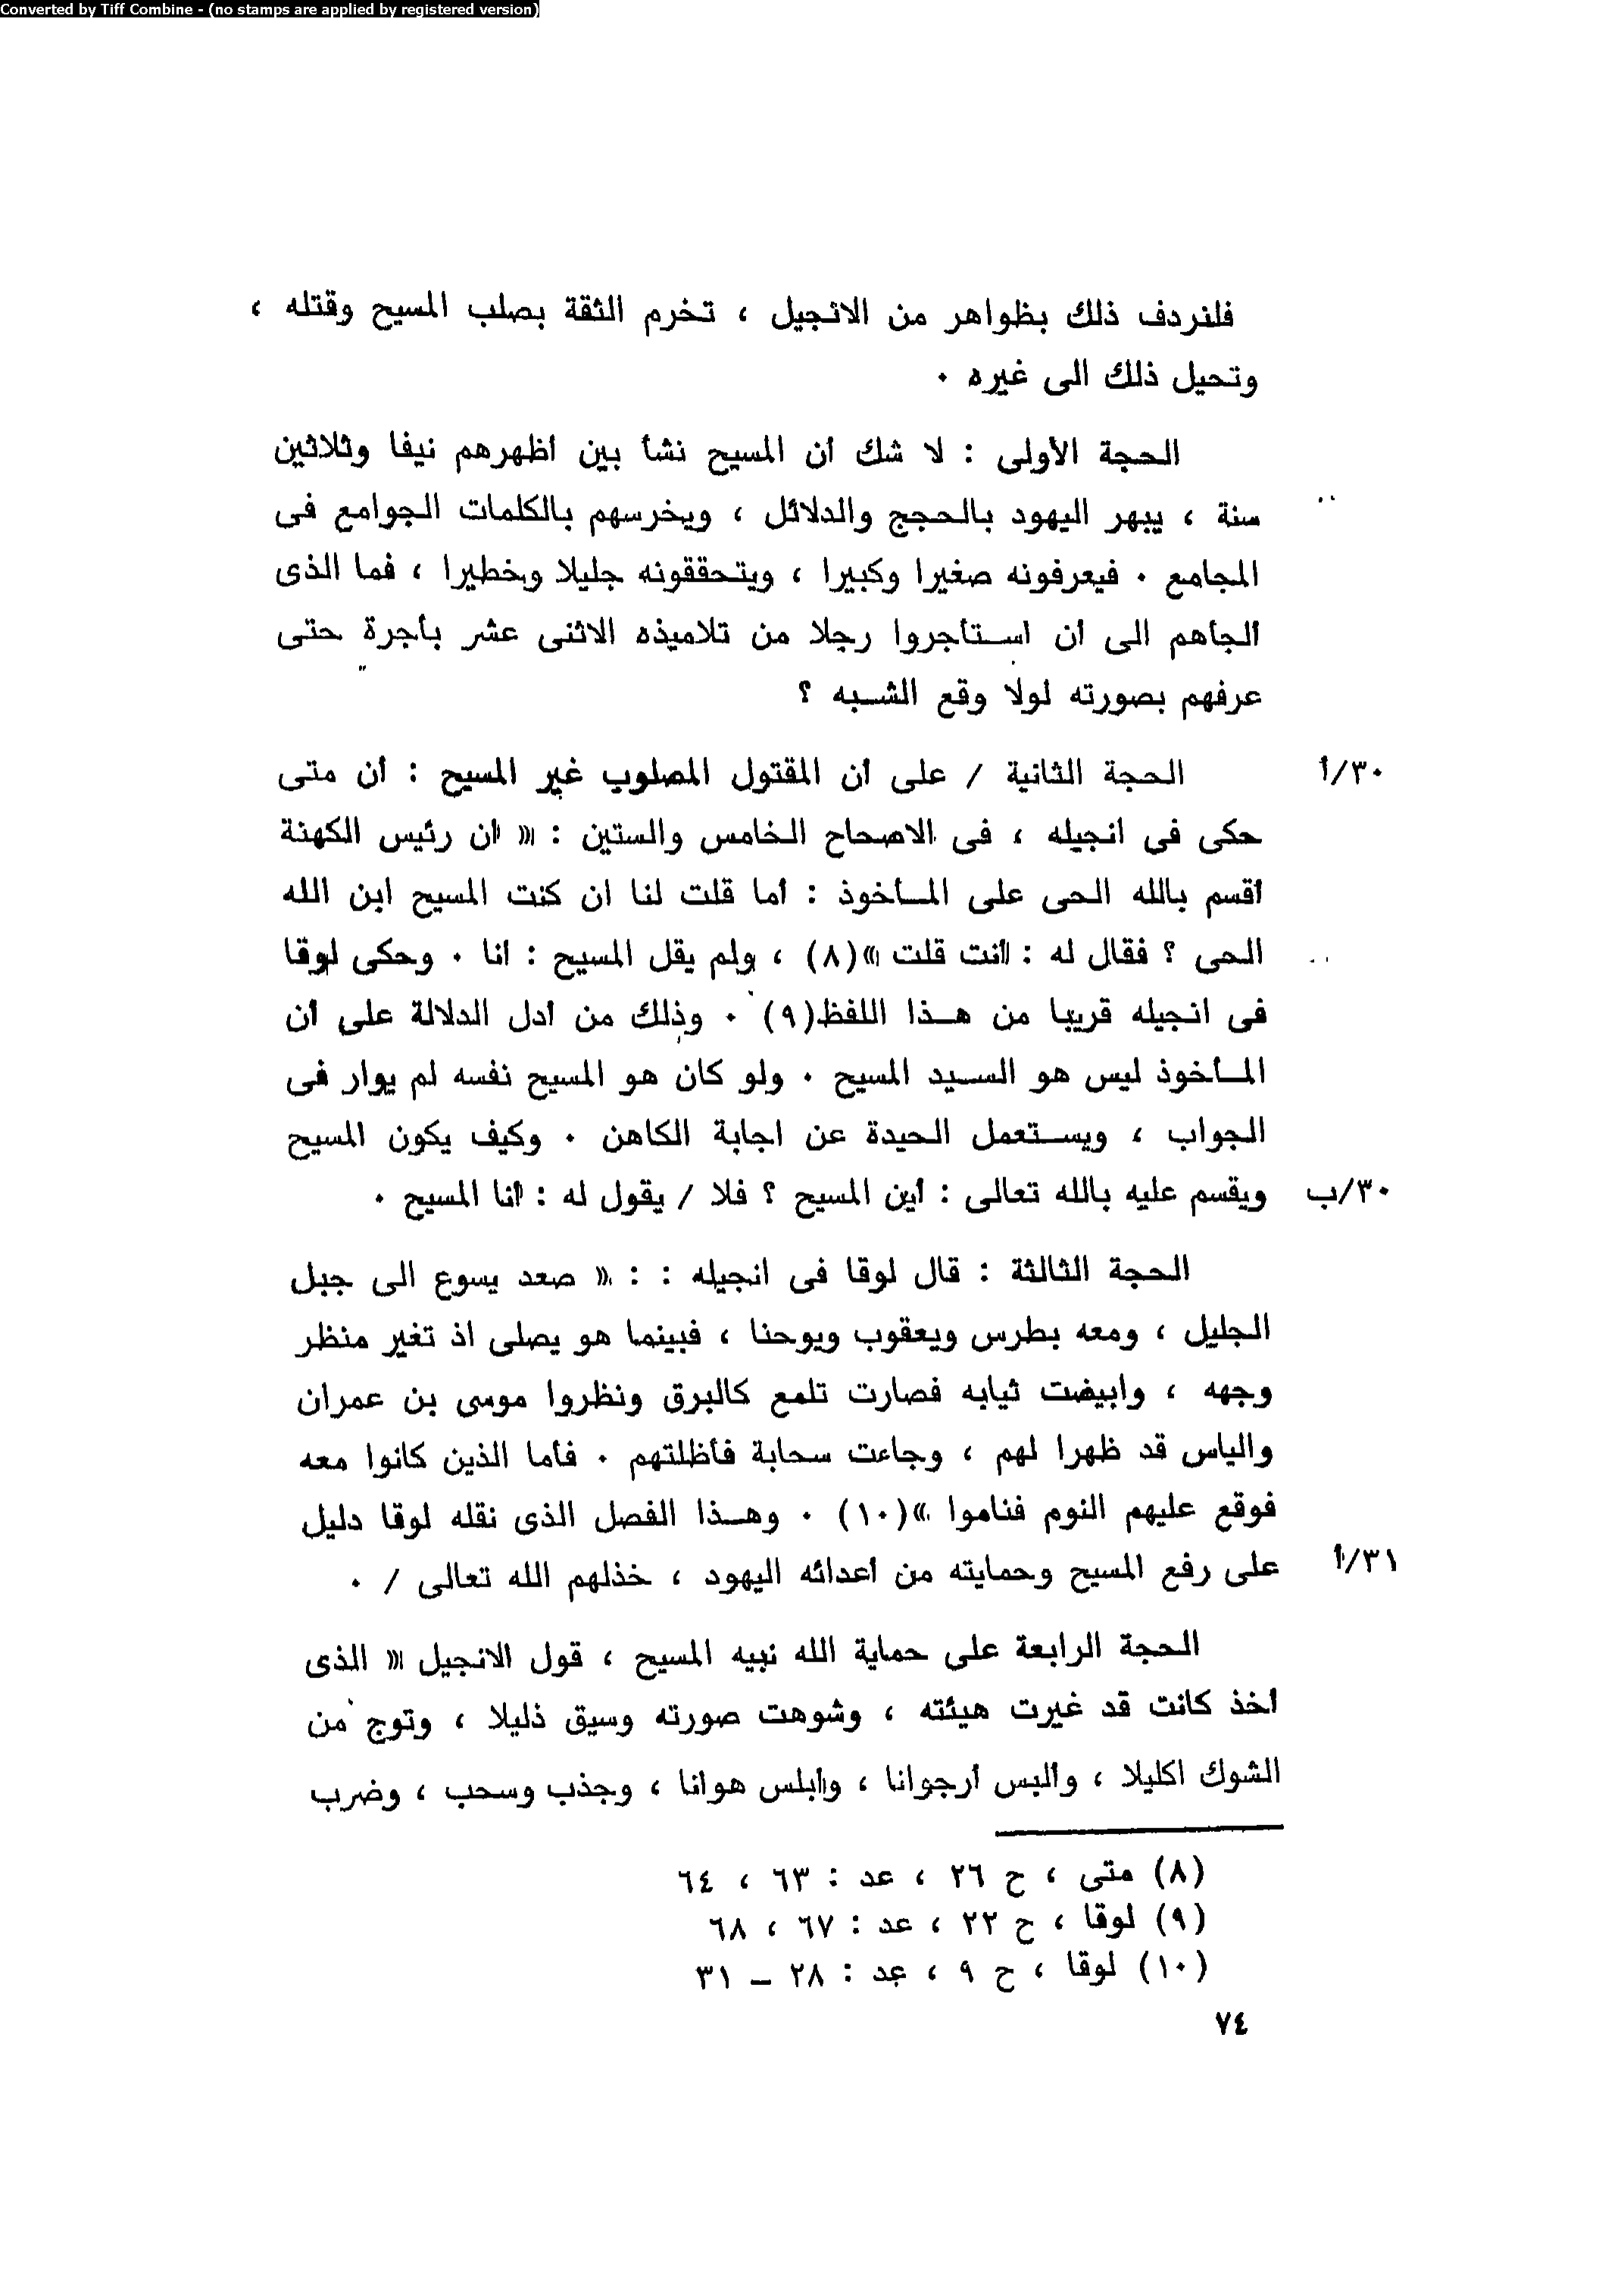 Converted by Tiff Combine - (no stamps are applied by registered version)
فلنردف ذلك بظواهر من الانجيل ، تخرم الثقة بصلب المسيح وقتله ،
وتحيل ذلك الى غيره ٠
الحجة الأولى : لا شك أن المسيح نشأ بين أظهرهم نيفا وثلاثين
سنة ، يبهر اليهود بالحجج والدلائل ، ويخرسهم بالكلمات الجوامع فى
المجامع ٠ فيعرفونه صغيرا وكبيرا ، ويتحققونه جليلا وخطيرا ، فما الذى
ألجأهم الى أن استأجروا رجلا من تلاميذه الاثنى عشر بأجرة حتى
عرفهم بصورته لولا وقع الشبه ؟
٣٠/أ الحجة الثانية / على أن المقتول المصلوب غير المسيح : أن متى
حكى فى انجيله ، فى الاصحاح الخامس والستين : « ان رئيس الكهنة
أقسم بالله الحى على المأخوذ : أما قلت لنا ان كنت المسيح ابن الله
الحى ؟ فقال له : أنت قلت »(٨) ، ولم يقل المسيح : أنا ٠ وحكى لوقا
فى انجيله قريبا من هذا اللفظ(٩) ٠ وذلك من أدل الدلالة على أن
المأخوذ ليس هو السيد المسيح ٠ ولو كان هو المسيح نفسه لم يوار فى
الجواب ، ويستعمل الحيدة عن اجابة الكاهن ٠ وكيف يكون المسيح
٣٠/ب ويقسم عليه بالله تعالى : أين المسيح ؟ فلا / يقول له : أنا المسيح ٠
الحجة الثالثة : قال لوقا فى انجيله : : « صعد يسوع الى جبل
الجليل ، ومعه بطرس ويعقوب ويوحنا ، فبينما هو يصلى اذ تغير منظر
وجهه ، وابيضت ثيابه فصارت تلمع كالبرق ونظروا موسى بن عمران
والياس قد ظهرا لهم ، وجاءت سحابة فأظلتهم ٠ فأما الذين كانوا معه
فوقع عليهم النوم فناموا »(١٠) ٠ وهذا الفصل الذى نقله لوقا دليل
٣١/أ على رفع المسيح وحمايته من أعدائه اليهود ، خذلهم الله تعالى / ٠
الحجة الرابعة على حماية الله نبيه المسيح ، قول الانجيل « الذى
أخذ كانت قد غيرت هيئته ، وشوهت صورته وسيق ذليلا ، وتوج من
الشوك اكليلا ، وألبس أرجوانا ، وأبلس هوانا ، وجذب وسحب ، وضرب
(٨) متى ، ح ٢٦ ، عد : ٦٣ ، ٦٤
(٩) لوقا ، ح ٢٢ ، عد : ٦٧ ، ٦٨
(١٠) لوقا ، ح ٩ ، عد : ٢٨ – ٣١
٧٤